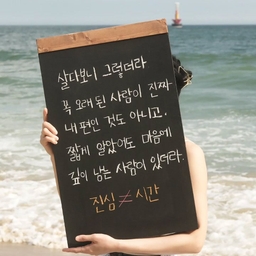 살다보니 그렇더라
꼭 오래 된 사람이 진짜
내 편인 것도 아니고,
짧게 알았어도 마음에
깊이 남는 사람이 있더라.
진심 ≠ 시간